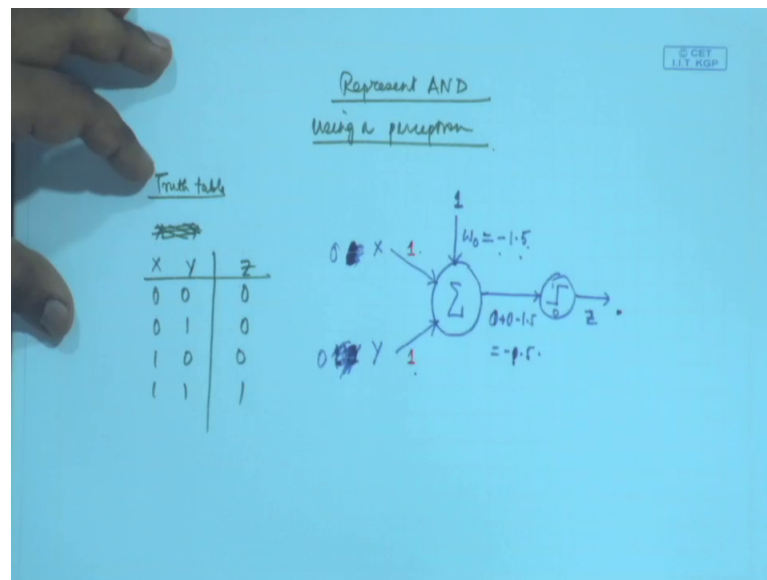 © CET
I.I.T. KGP
Represent AND
Using a perceptron
Truth table
X Y Z
0 0 0
0 1 0
1 0 0
1 1 1
1
W₀ = -1.5
0 X 1
Σ
1
0
Z
0+0-1.5
= -1.5
0 Y 1